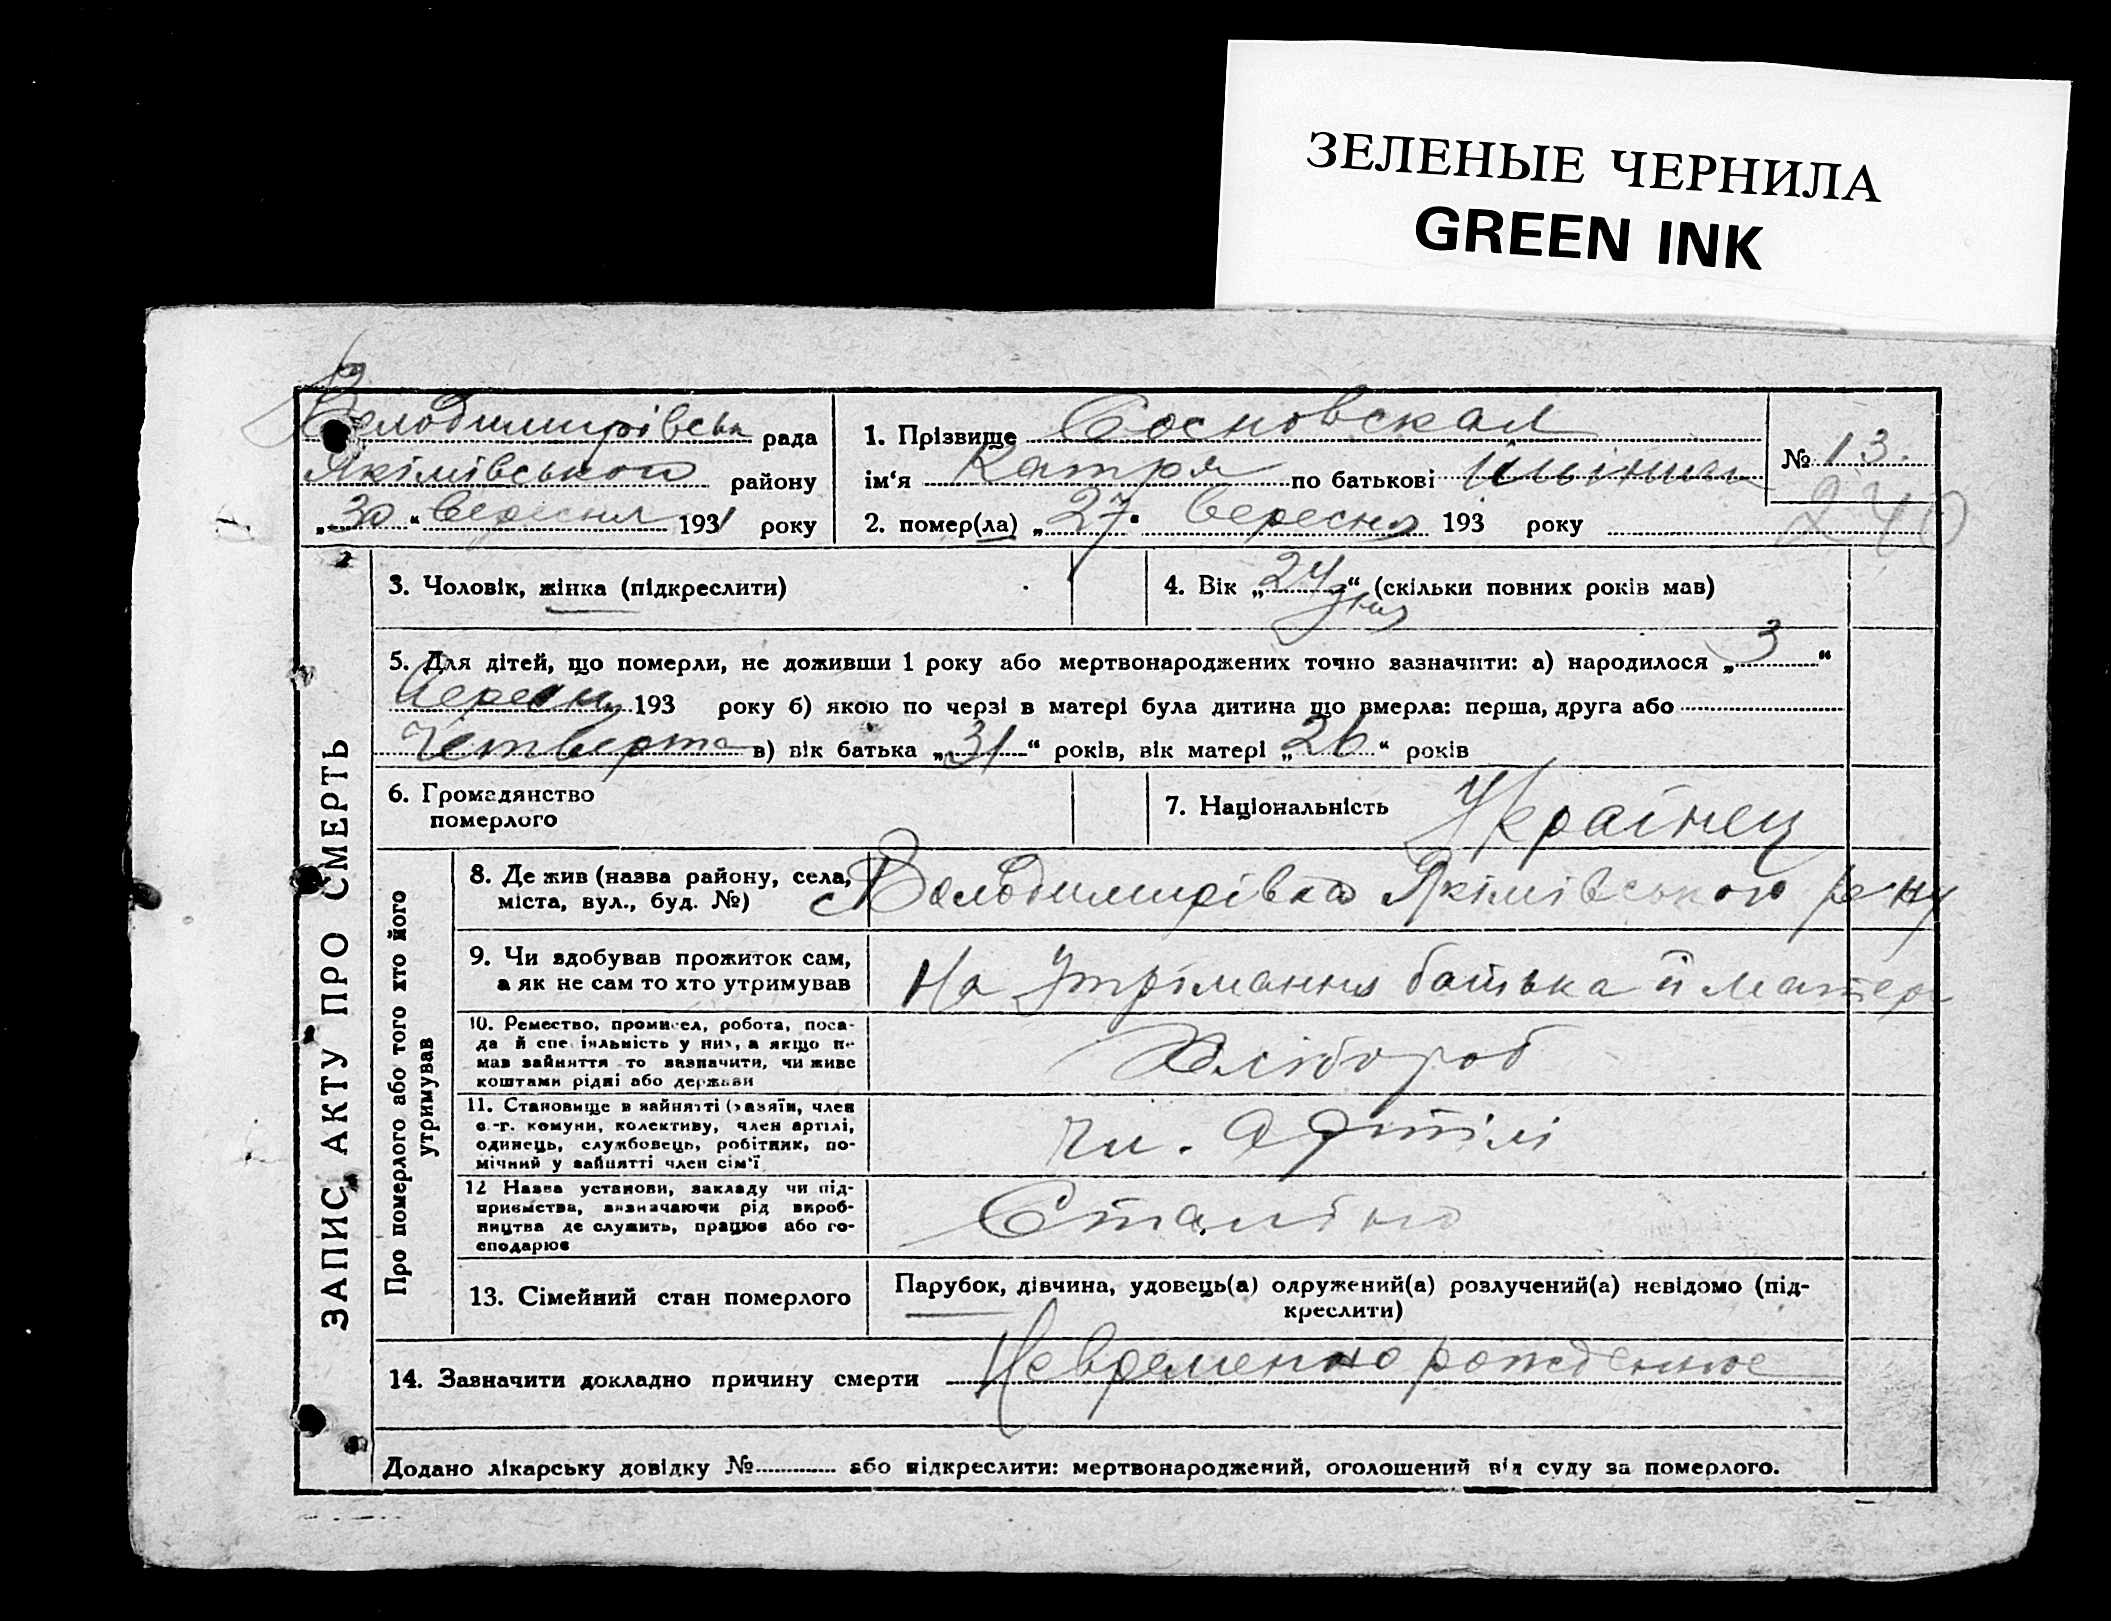 ЗЕЛЕНЫЕ ЧЕРНИЛА
GREEN INK
Володимирівська рада
Якімівського району
„30“ вересня 1931 року
1. Прізвище Сосновская
ім‘я Катря по батькові
2. помер(ла) „27“ вересня 193 року
№ 13.
240
ЗАПИС АКТУ ПРО СМЕРТЬ
3. Чоловік, жінка (підкреслити)
4. Вік „24“ (скільки повних років мав)
дня
5. Для дітей, що померли, не доживши 1 року або мертвонароджених точно зазначити: а) народилося „3“
193 року б) якою по черзі в матері була дитина що вмерла: перша, друга або
Четверта в) вік батька „31“ років, вік матері „26“ років
6. Громадянство
померлого
7. Національність Українец
Про померлого або того хто його
утримував
8. Де жив (назва району, села,
міста, вул., буд. №)
с Володимирівка Якімівського р-ну
9. Чи здобував прожиток сам,
а як не сам то хто утримував
На утрімання батька й матер
10. Ремество, промисел, робота, поса-
да й спеціяльність у них, а якщо не
мав зайняття то зазначити, чи живе
коштами рідні або держави
Хлібороб
11. Становище в зайнятті (хазяїн, член
с.-г. комуни, колективу, член артілі,
одинець, службовець, робітник, по-
мічний у зайнятті член сім‘ї
чл. артілі
12 Назва установи, закладу чи під-
приємства, визначаючи рід вироб-
ництва де служить, працює або го-
сподарює
Сталіно
13. Сімейний стан померлого
Парубок, дівчина, удовець(а) одружений(а) розлучений(а) невідомо (під-
креслити)
14. Зазначити докладно причину смерти Невременно рожденное
Додано лікарську довідку № або підкреслити: мертвонароджений, оголошений від суду за померлого.